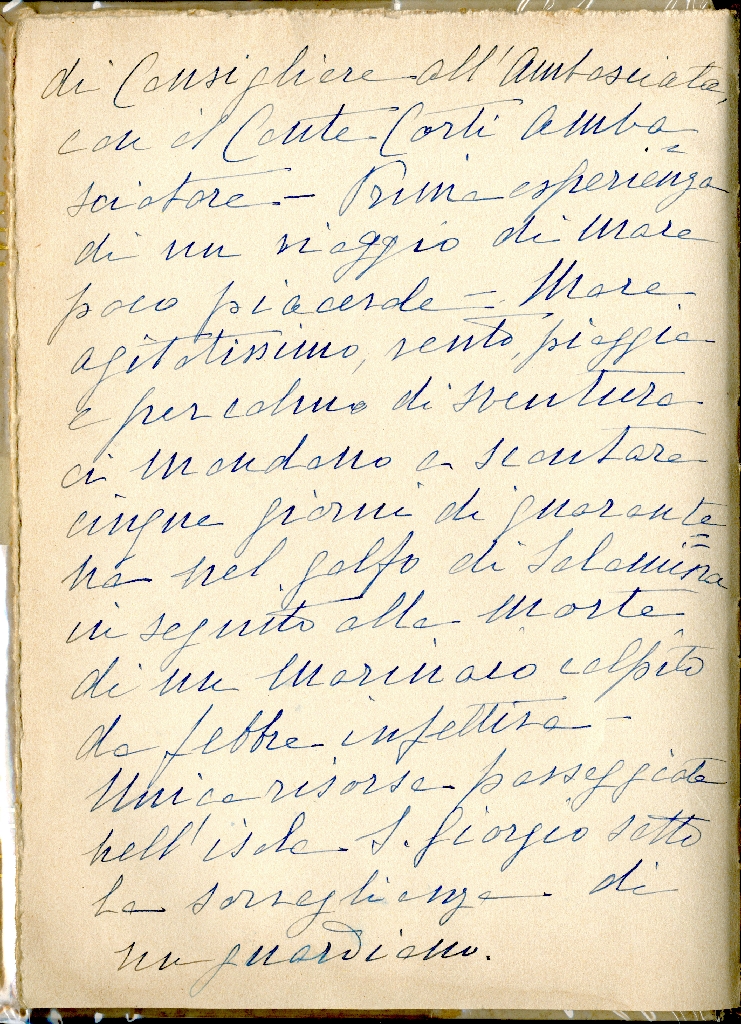 di Consigliere all'Ambasciata,
con il Conte Corti Amba
sciatore – Prima esperienza
di un viaggio di mare
poco piacevole = Mare
agitatissimo, vento, pioggia
e per colmo di sventura
ci mandano a scontare
cinque giorni di quarante=
na nel golfo di Salamina
in seguito alla morte
di un marinaio colpito
da febbre infettiva –
Unica risorsa passeggiate
nell'isola S. Giorgio sotto
la sorveglianza di
un guardiano.